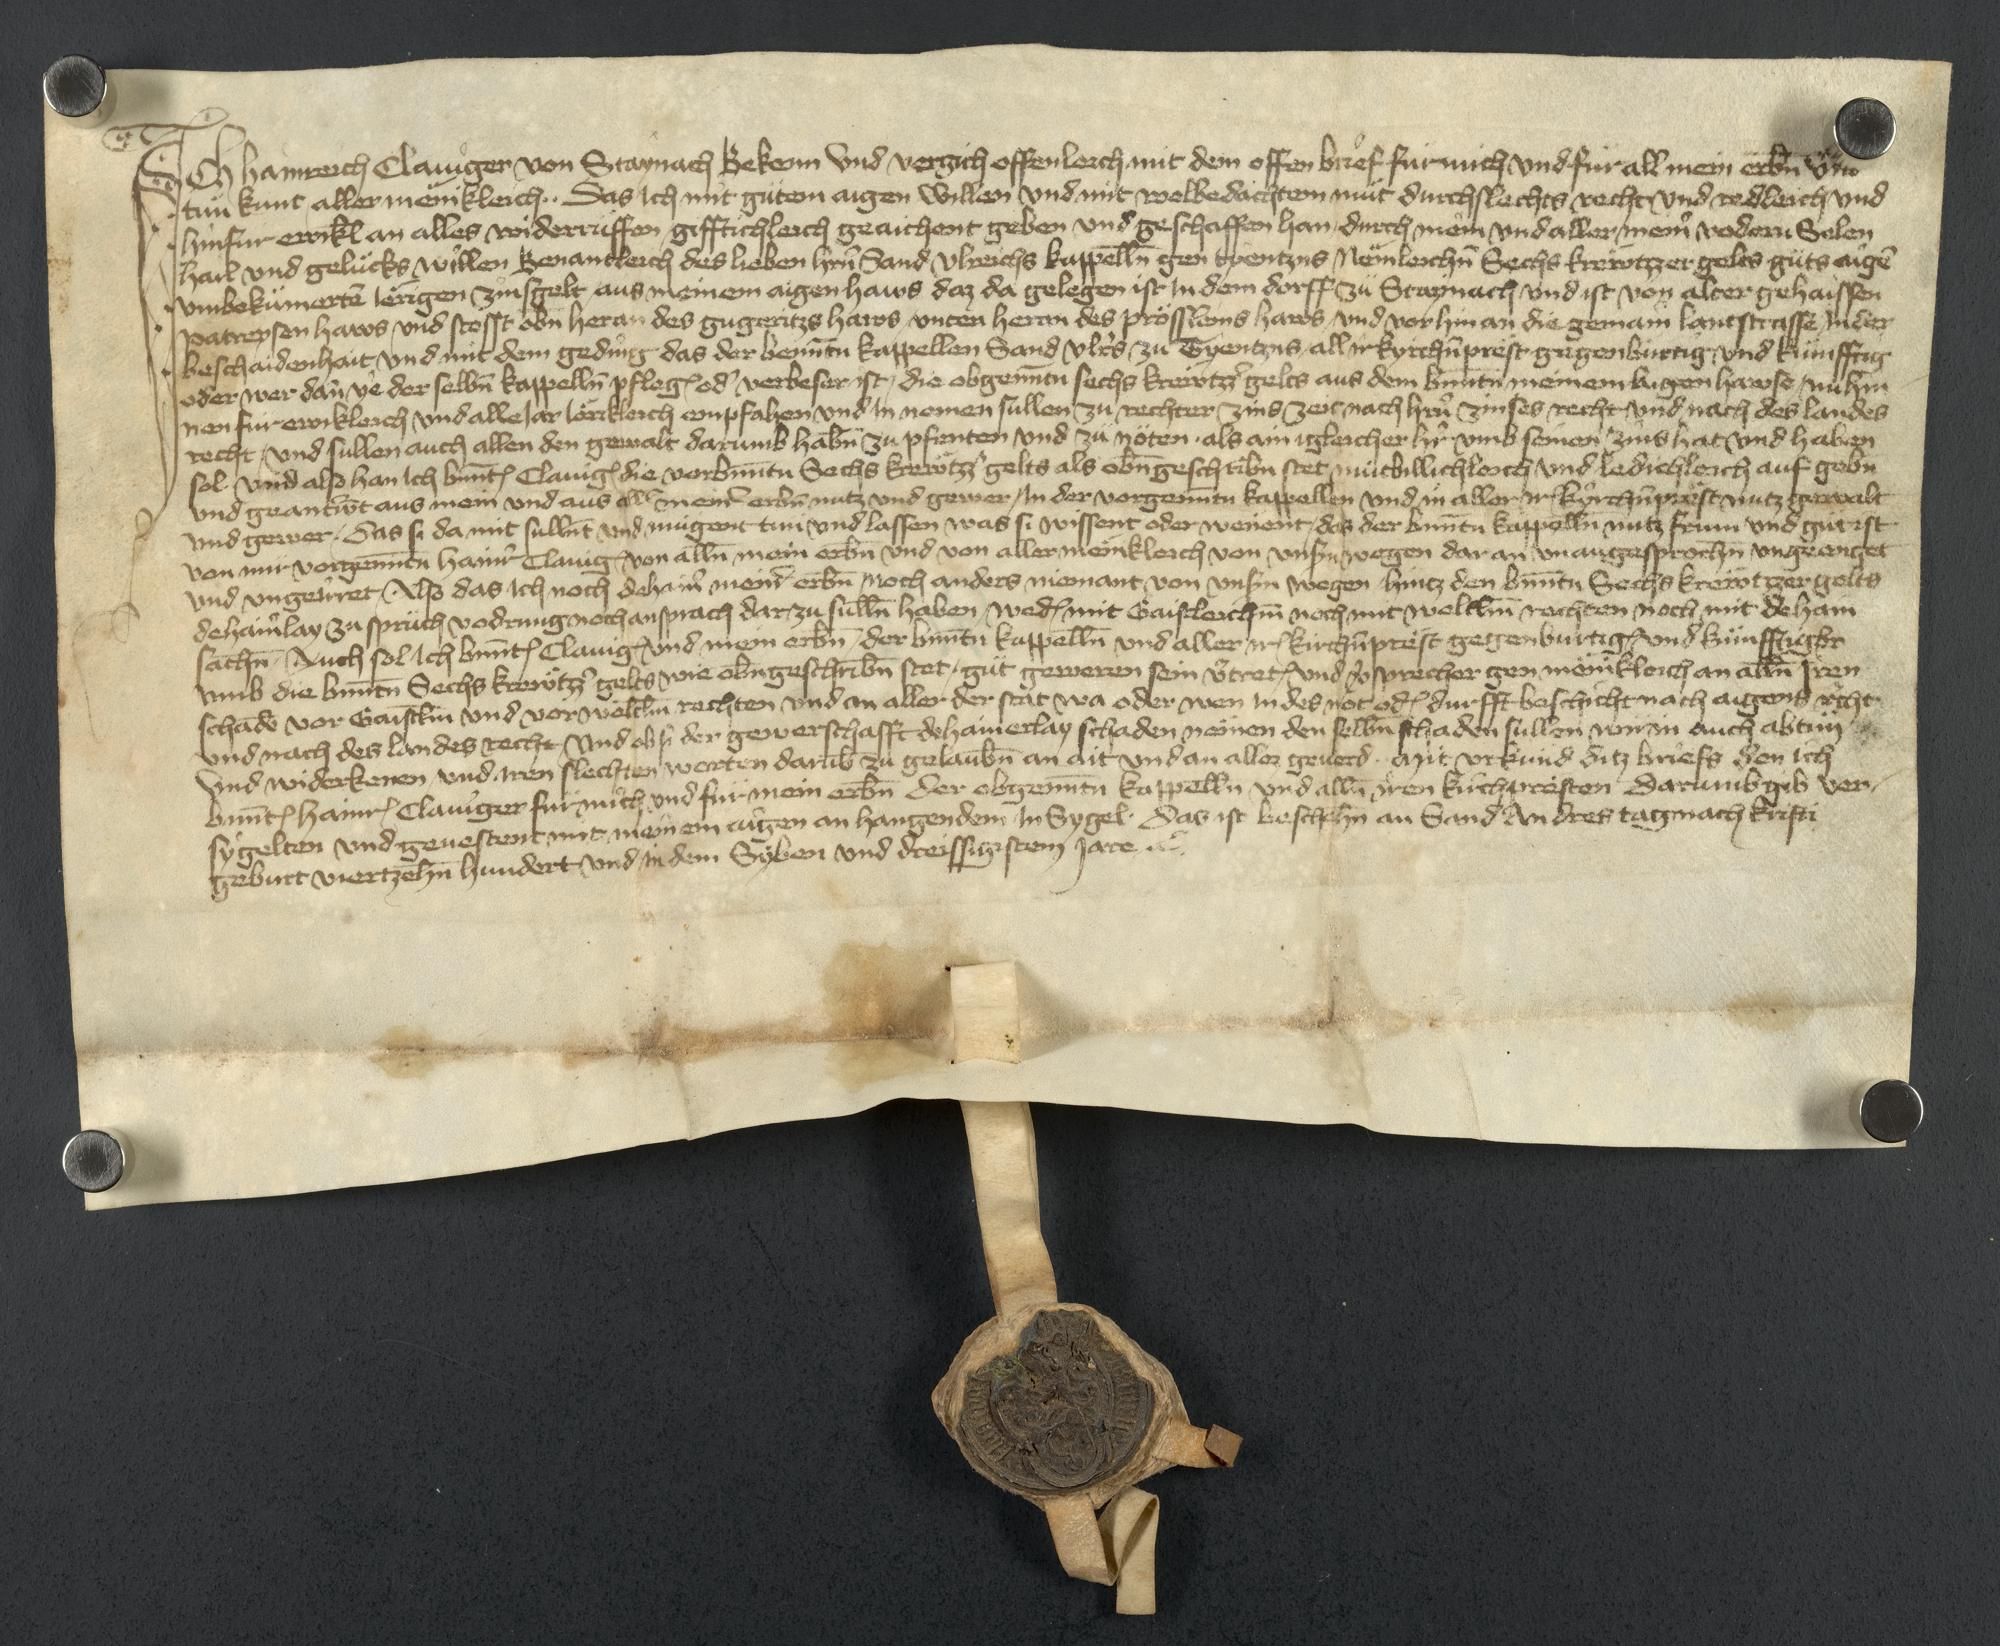 Ich hainreich Clauiger von Staynach Bekenn und vergich offenleich mit dem offen brief fur mich vnd fur all mein erbn̄ vn̄
tun kunt aller menikleich · Das ich mit gutem aigen willen vnd mit wolbedachtem mut durchslechts recht vnd redleich vnd
hinfur ewikl an alles widerruffen gifftichleich geaichent geben vnd geschaffen han durch mein vnd aller meinr vodern Selen
hail vnd gelucks willen Benantleich des lieben hrn̄ Sand Vlreichs kappelln̄ gen tyentzns Nemleichn̄ Sechs krewtzer gelts guts aigē
vmbekumertē lerigen zinsgelt aus meinem aigen haws daz da gelegen ist in dem dorff zu Staynach vnd ist von alter gehaissen
patrensen haws vnd stosst obn̄ heran des gugeritzs haws vnten heran des Prösslems haws vnd vorhin an die gemain lantstrasse in der
beschaidenhait vnd mit dem geding das der benn̄tn kappellen Sand vlrs zu Tyentzns all ir kyrchn̄prest gegenburtig vnd kunfftig
oder wer dan̄ ye der selbn̄ kappelln̄ pfleger od verbeser ist die obgenn̄tn sechs krewtzr gelts aus dem bnn̄tn meinem aigen hawse nu hin
nen fur ewikleich vnd alle Jar Jörikleich empfahen vnd in nemen sullen zu rechter zins zeit nach hrn̄ zinses recht vnd nach des landes
recht vnd sullen auch allen den gewalt darumb habn̄ zu pfenten vnd zu nöten als ain igleicher hr vmb seinen zins hat vnd haben
sol vnd also han ich bnn̄tr Clauigr die vorbnn̄tn Sechs krewtzr gelts als obn̄geschribn stet mutbillichleich vnd ledichleich auf gebn
vnd geantwt aus mein vnd aus aller meinr erbn̄ nutz vnd gewer in der vorgenn̄tn kappellen vnd in aller ir kyrchn̄prest nutz gewalt
vnd gewer · Das si da mit sulln̄t vnd mugent tun vnd lassen was si wissent oder wenent das der bnn̄tn kappelln̄ nutz frum vnd gut ist
von mir vorgenn̄tn hainr Clauigr von alln̄ mein erbn̄ vnd von aller menikleich von vnsrn wegen dar an vnangesprochn̄ vngeenget
vnd vngeirret Also das ich noch dehainr meinr erbn̄ noch anders niemant von vnsrn wegen hintz den bnn̄tn Sechs krewtzer gelts
dehainlay zu spruch vodrung noch ansprach dar zu sulln̄ haben wedr mit Gaistleichn̄ noch mit weltln̄ rechten noch mit dehain
sachn̄ · Auch sol ich bnn̄tr Clauigr vnd mein erbn̄ der bnn̄tn kappelln̄ vnd aller ir kirchn̄prest gegenburtigr vnd kunfftigr
vmb die bnn̄tn Sechs krewtzr gelts wie obngeschribn̄ stet gut geweren sein vtretr vnd vsprecher gen menikleich an alln̄ Iren
schadē vor Gaistln̄ vnd vor weltln̄ rechten vnd an aller der stat wa oder wen in des not odr durfft beschicht nach aigens recht
vnd nach des landes recht Vnd ob si der gewerschafft dehainerlay schaden nemen den selbn̄ schaden sullen wir in auch abtun
vnd widerkeren vnd iren slechten worten darub zu gelaubn̄ an ait vnd an allez geuerd · Mit vrkund ditz briefs den ich
bnn̄tr hainr Clauiger fur mich vnd fur mein erbn̄ der obgenn̄tn kappelln̄ vnd alln̄ iren kirchpresten darumb gib ver
sygelten vnd geuestent mit meinem aigen an hangendem In Sygel · Das ist beschehn̄ an Sand Andres tag nach Kristi
geburt viertzehn̄ hundert vnd in dem Syben vnd dreissigistem Jare